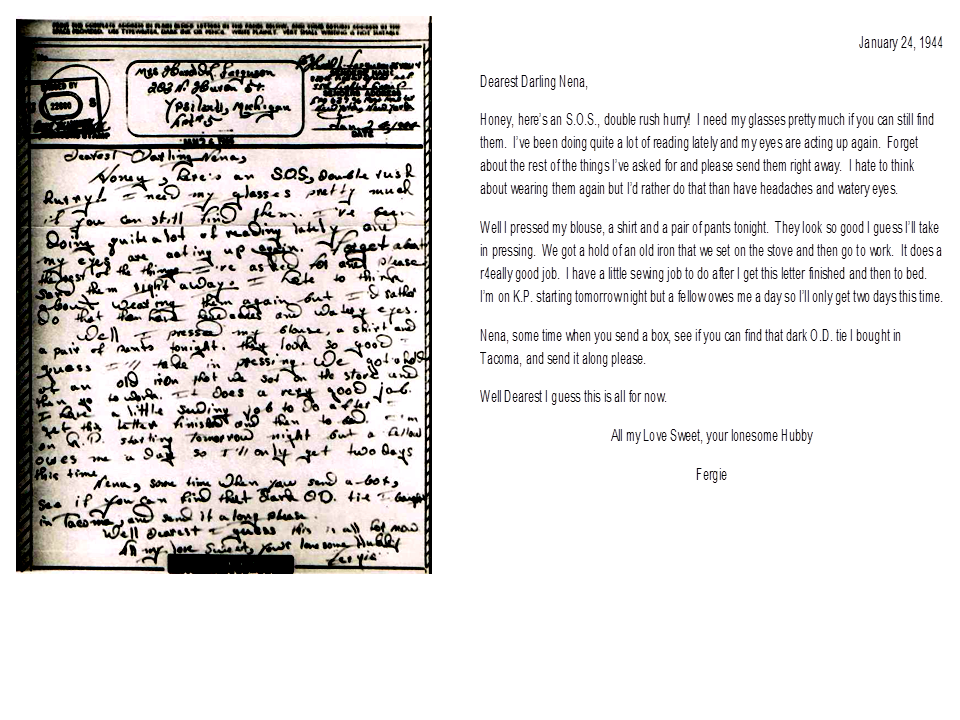 PRINT THE COMPLETE ADDRESS IN PLAIN BLOCK LETTERS IN THE PANEL BELOW, AND YOUR RETURN ADDRESS IN THE
SPACE PROVIDED. USE TYPEWRITER, DARK INK OR PENCIL. WRITE PLAINLY. VERY SMALL WRITING IS NOT SUITABLE.
22600
Mrs Harold Ferguson
203 N. Huron St.
Ypsilanti, Michigan
SENDER'S NAME
SENDER'S ADDRESS
New York, New York
DATE
Dearest Darling Nena,
Honey, here's an S.O.S, double rush
hurry! I need my glasses pretty much
if you can still find them. I've been
doing quite a lot of reading lately and
my eyes are acting up again. Forget about
the rest of the things I've asked for and please
send them right away. I hate to think
about wearing them again but I'd rather
do that than have headaches and watery eyes.
Well I pressed my blouse, a shirt and
a pair of pants tonight. They look so good I
guess I'll take in pressing. We got a hold
of an old iron that we set on the stove and
then go to work. It does a very good job.
I have a little sewing job to do after I
get this letter finished and then to bed. I'm
on K.P. starting tomorrow night but a fellow
owes me a day so I'll only get two days
this time.
Nena, some time when you send a box,
see if you can find that dark O.D. tie I bought
in Tacoma, and send it along please.
Well Dearest I guess this is all for now
All my love Sweet, your lonesome Hubby
Fergie
January 24, 1944
Dearest Darling Nena,
Honey, here's an S.O.S., double rush hurry! I need my glasses pretty much if you can still find
them. I've been doing quite a lot of reading lately and my eyes are acting up again. Forget
about the rest of the things I've asked for and please send them right away. I hate to think
about wearing them again but I'd rather do that than have headaches and watery eyes.
Well I pressed my blouse, a shirt and a pair of pants tonight. They look so good I guess I'll take
in pressing. We got a hold of an old iron that we set on the stove and then go to work. It does a
r4eally good job. I have a little sewing job to do after I get this letter finished and then to bed.
I'm on K.P. starting tomorrow night but a fellow owes me a day so I'll only get two days this time.
Nena, some time when you send a box, see if you can find that dark O.D. tie I bought in
Tacoma, and send it along please.
Well Dearest I guess this is all for now.
All my Love Sweet, your lonesome Hubby
Fergie